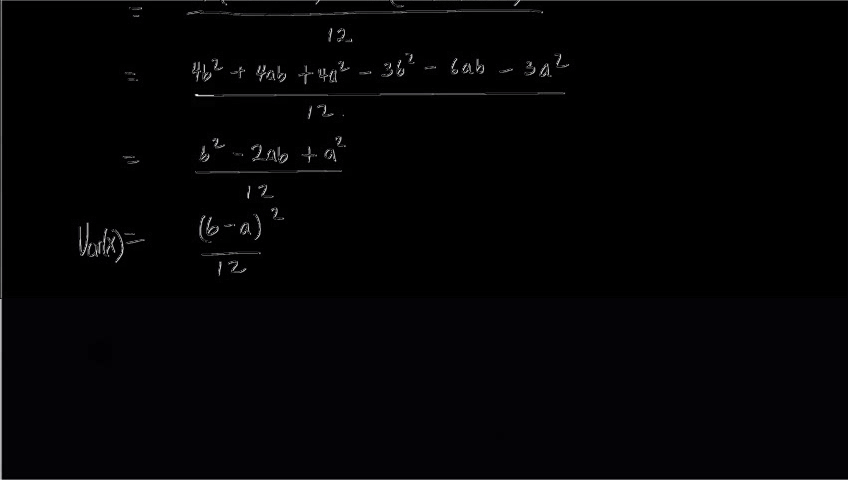 =
12
= 4b² + 4ab + 4a² - 3b² - 6ab - 3a²
12.
= b² - 2ab + a²
12
Var(x) = (b-a)²
12